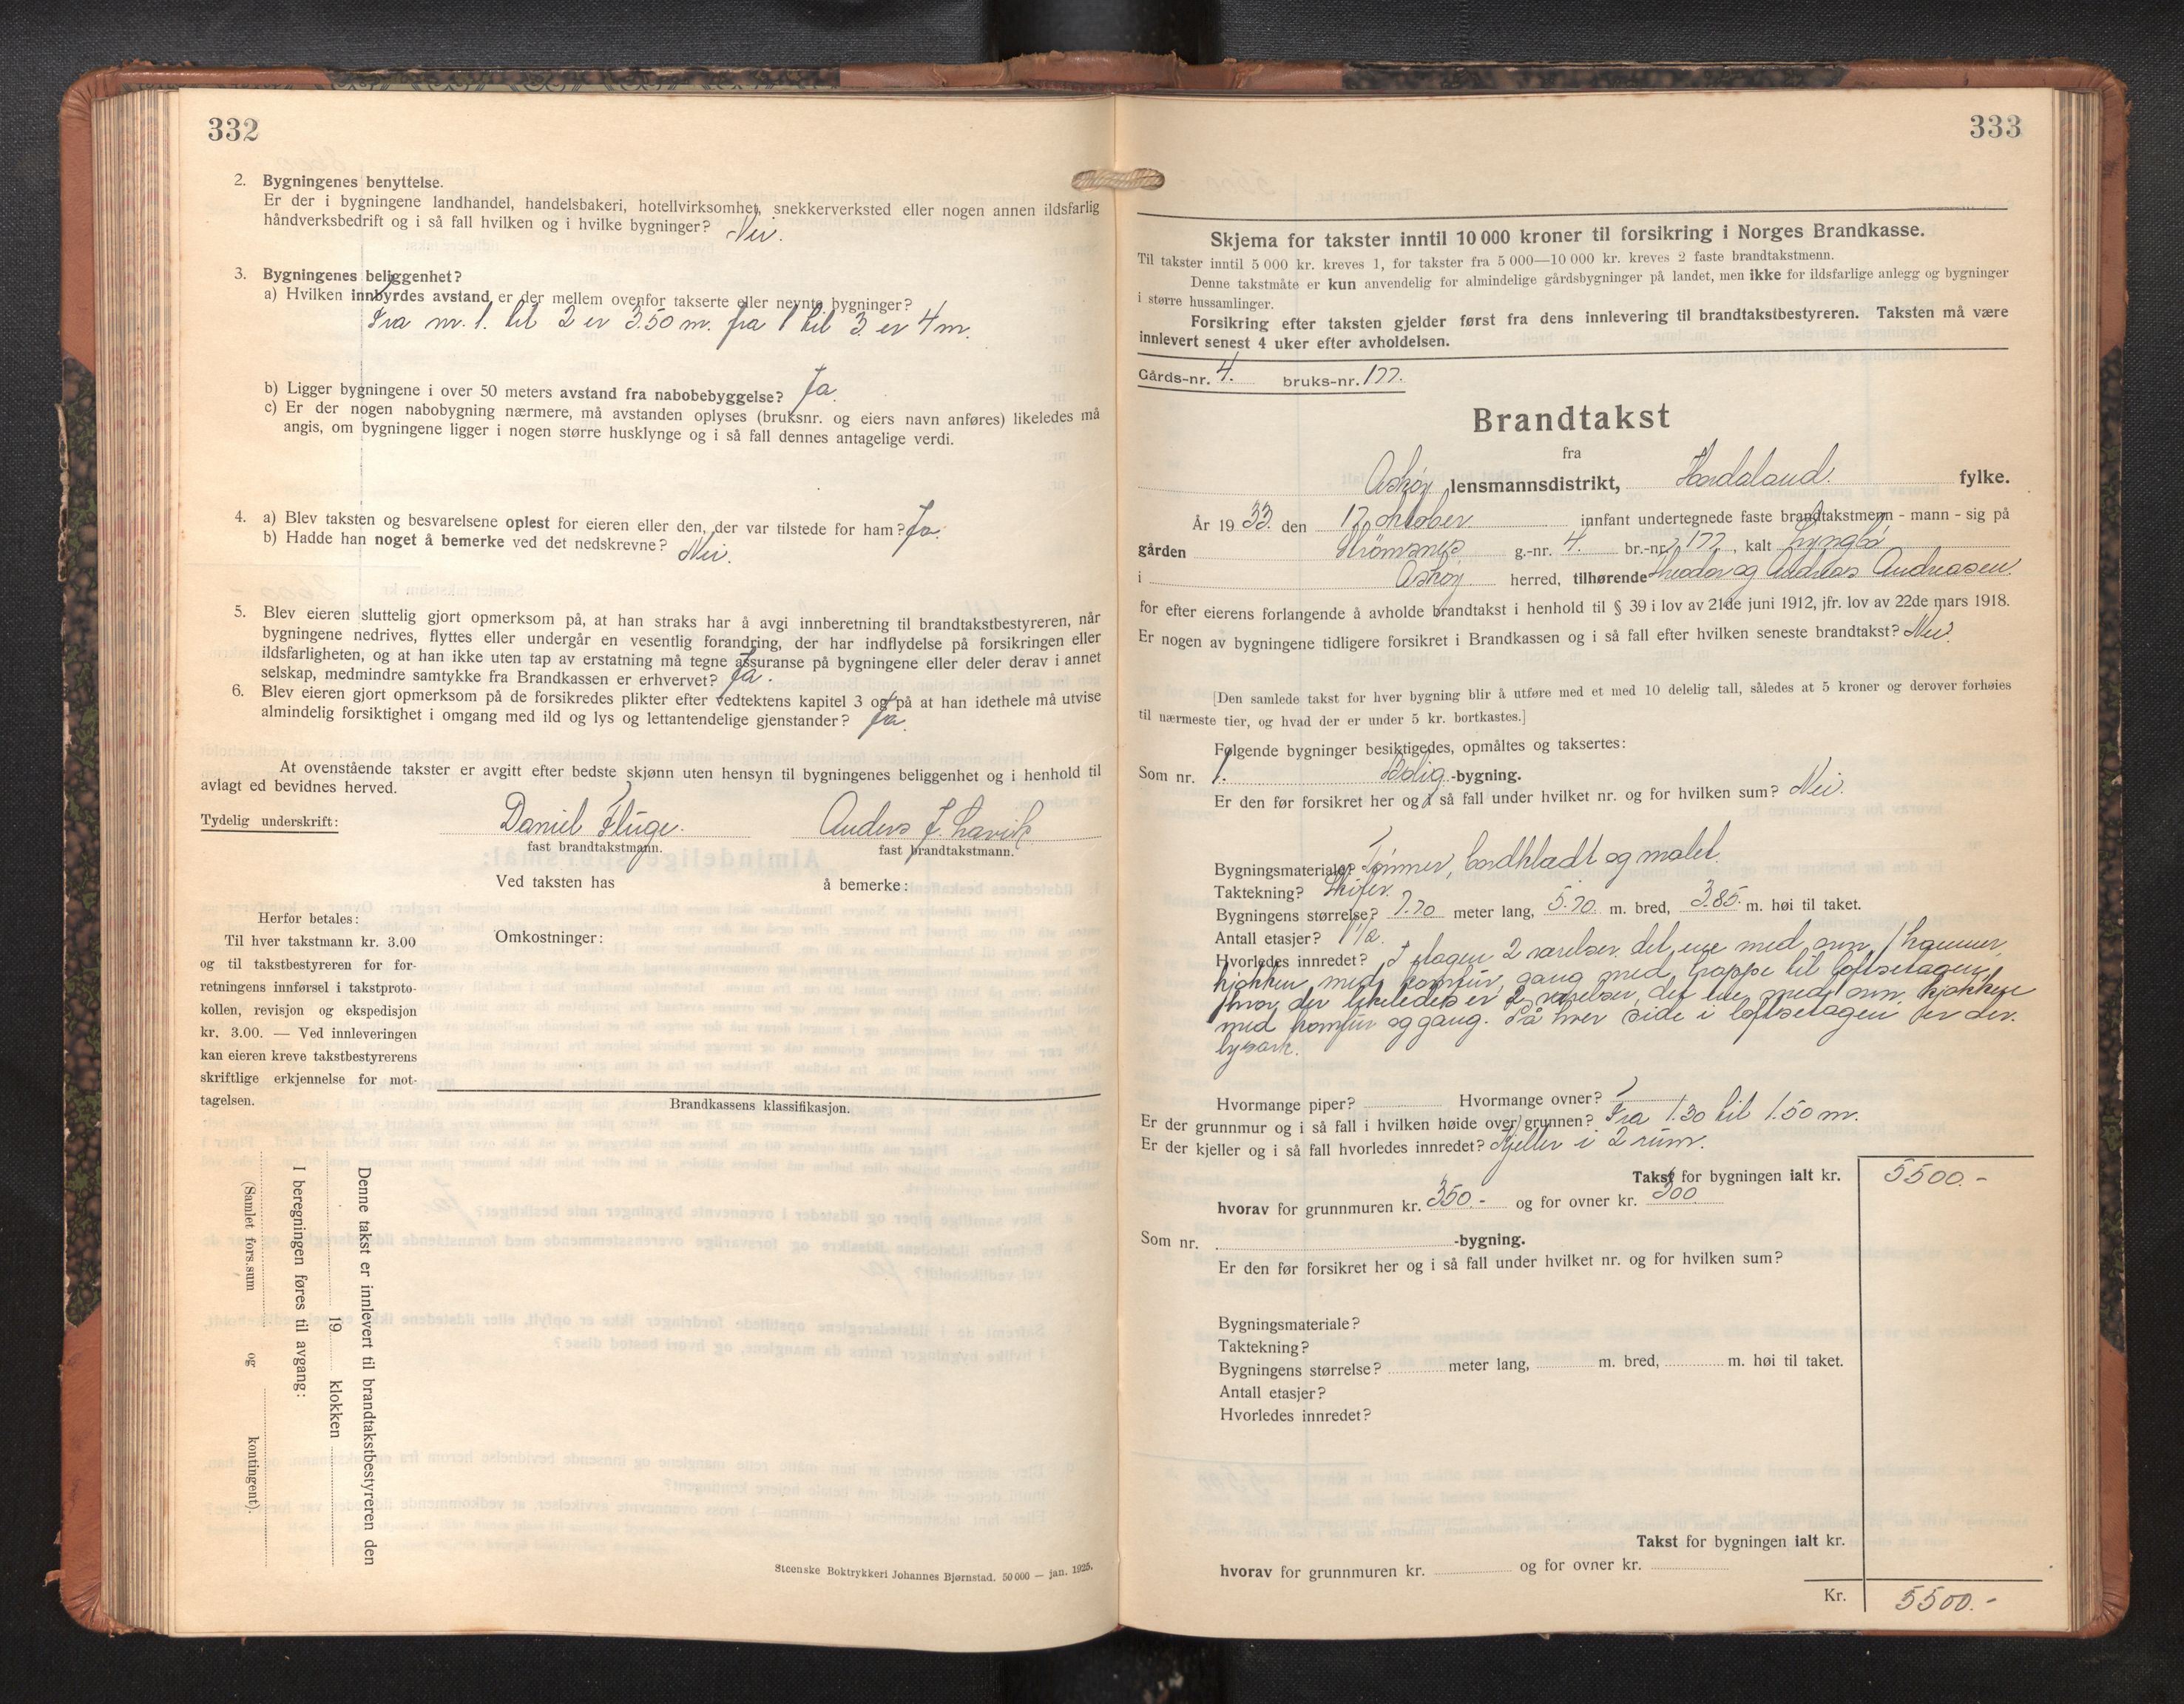 332
2. Bygningenes benyttelse.
Er der i bygningene landhandel, handelsbakeri, hotellvirksomhet, snekkerverksted eller nogen annen ildsfarlig
håndverksbedrift og i så fall hvilken og i hvilke bygninger? Nei.
3. Bygningenes beliggenhet?
a) Hvilken innbyrdes avstand er der mellem ovenfor takserte eller nevnte bygninger?
Fra nr. 1. til 2 er 3.50 m. fra 1 til 3 er 4 m.
b) Ligger bygningene i over 50 meters avstand fra nabobebyggelse? Ja.
c) Er der nogen nabobygning nærmere, må avstanden oplyses (bruksnr. og eiers navn anføres) likeledes må
angis, om bygningene ligger i nogen større husklynge og i så fall dennes antagelige verdi.
4. a) Blev taksten og besvarelsene oplest for eieren eller den, der var tilstede for ham? Ja.
b) Hadde han noget å bemerke ved det nedskrevne? Nei.
5. Blev eieren sluttelig gjort opmerksom på, at han straks har å avgi innberetning til brandtakstbestyreren, når
bygningene nedrives, flyttes eller undergår en vesentlig forandring, der har indflydelse på forsikringen eller
ildsfarligheten, og at han ikke uten tap av erstatning må tegne assuranse på bygningene eller deler derav i annet
selskap, medmindre samtykke fra Brandkassen er erhvervet? Ja.
6. Blev eieren gjort opmerksom på de forsikredes plikter efter vedtektens kapitel 3 og på at han idethele må utvise
almindelig forsiktighet i omgang med ild og lys og lettantendelige gjenstander? Ja.
At ovenstående takster er avgitt efter bedste skjønn uten hensyn til bygningenes beliggenhet og i henhold til
avlagt ed bevidnes herved.
Tydelig underskrift: Daniel Fluge. Anders J. Lavik
fast brandtakstmann. fast brandtakstmann.
Ved taksten has å bemerke:
Herfor betales:
Til hver takstmann kr. 3.00
og til takstbestyreren for for-
retningens innførsel i takstproto-
kollen, revisjon og ekspedisjon
kr. 3.00. — Ved innleveringen
kan eieren kreve takstbestyrerens
skriftlige erkjennelse for mot-
tagelsen.
Omkostninger:
Brandkassens klassifikasjon.
Denne takst er innlevert til brandtakstbestyreren den
19 klokken
I beregningen føres til avgang:
(Samlet fors.sum og kontingent).
Steenske Boktrykkeri Johannes Bjørnstad. 50 000 — jan. 1925.
333
Skjema for takster inntil 10 000 kroner til forsikring i Norges Brandkasse.
Til takster inntil 5 000 kr. kreves 1, for takster fra 5 000—10 000 kr. kreves 2 faste brandtakstmenn.
Denne takstmåte er kun anvendelig for almindelige gårdsbygninger på landet, men ikke for ildsfarlige anlegg og bygninger
i større hussamlinger.
Forsikring efter taksten gjelder først fra dens innlevering til brandtakstbestyreren. Taksten må være
innlevert senest 4 uker efter avholdelsen.
Gårds-nr. 4. bruks-nr. 177.
Brandtakst
fra
Askøy lensmannsdistrikt, Hordaland. fylke.
År 1933. den 17 oktober innfant undertegnede faste brandtakstmenn - mann - sig på
gården Strømsnes g.-nr. 4. br.-nr. 177, kalt Lyngbø
i Askøy herred, tilhørende Theodor og Andreas Andreasen
for efter eierens forlangende å avholde brandtakst i henhold til § 39 i lov av 21de juni 1912, jfr. lov av 22de mars 1918.
Er nogen av bygningene tidligere forsikret i Brandkassen og i så fall efter hvilken seneste brandtakst? Nei.
[Den samlede takst for hver bygning blir å utføre med et med 10 delelig tall, således at 5 kroner og derover forhøies
til nærmeste tier, og hvad der er under 5 kr. bortkastes.]
Følgende bygninger besiktigedes, opmåltes og taksertes:
Som nr. 1. Bolig-bygning.
Er den før forsikret her og i så fall under hvilket nr. og for hvilken sum? Nei.
Bygningsmateriale? Tømmer, bordkladt og malet.
Taktekning? Skifer.
Bygningens størrelse? 7.70 meter lang, 5.70 m. bred, 3.85 m. høi til taket.
Antall etasjer? 1 1/2.
Hvorledes innredet? I etagen 2 værelser, det ene med ovn, 1 kammer,
kjøkken med komfur, gang med trappe til loftsetagen,
hvor der likeledes er 2 værelser, det ene med ovn, kjøkken
med komfur og gang. På hver side i loftsetagen er der
lysark.
Hvormange piper? Hvormange ovner?
Er der grunnmur og i så fall i hvilken høide over grunnen? Fra 1.30 til 1.50 m.
Er der kjeller og i så fall hvorledes innredet? Kjeller i 2 rum.
Takst for bygningen ialt kr. 5500.-
hvorav for grunnmuren kr. 350.- og for ovner kr. 300
Som nr. -bygning.
Er den før forsikret her og i så fall under hvilket nr. og for hvilken sum?
Bygningsmateriale?
Taktekning?
Bygningens størrelse? meter lang, m. bred, m. høi til taket.
Antall etasjer?
Hvorledes innredet?
Takst for bygningen ialt kr.
hvorav for grunnmuren kr. og for ovner kr.
Kr. 5500.-